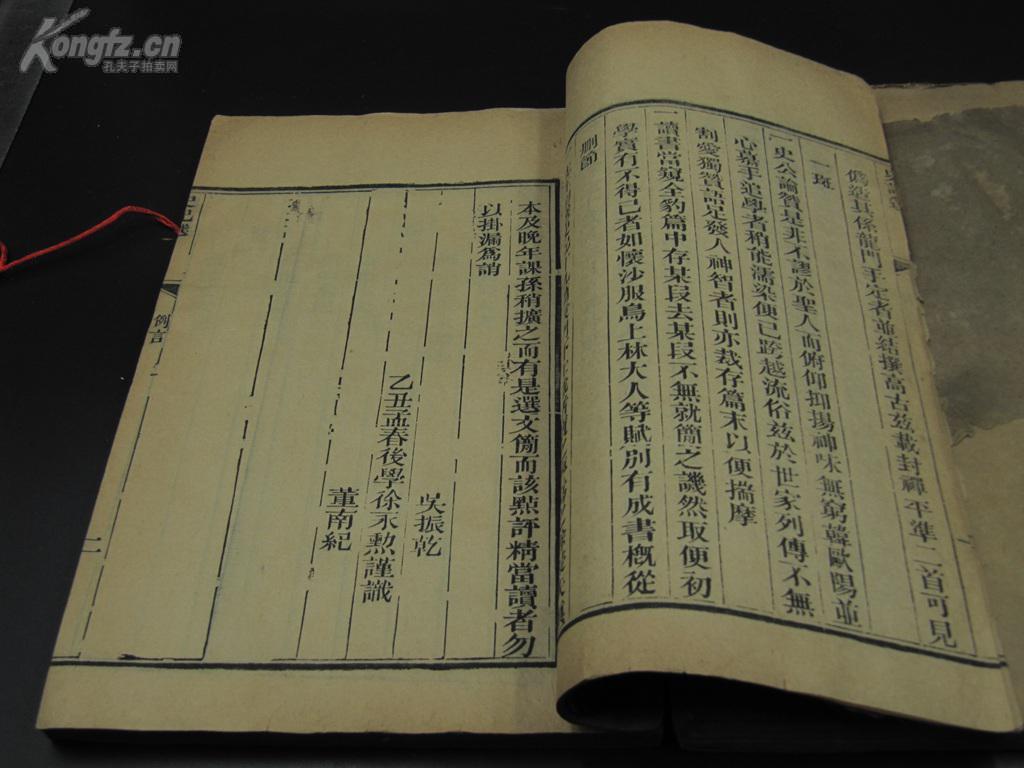 Kongfz.cn
孔夫子拍卖网
僞級其係龍門手定者並結撰高古茲載封禪平準二首可見
一斑
一史公論贊是非不謬於聖人而俯仰抑揚神味無窮韓歐陽並
心摹手追學者稍能濡染便已跨越流俗茲於世家列傳不無
割愛獨贊語足發人神智者則亦裁存篇末以便揣摩
一讀書當窺全豹篇中存某段去某段不無就簡之譏然取便初
學實有不得已者如懷沙服鳥上林大人等賦別有成書概從
刪節
本及晚年課孫稍擴之而有是選文簡而該點評精當讀者勿
以掛漏爲誚
吳振乾
乙丑孟春後學徐永勲謹識
董南紀
例言
二